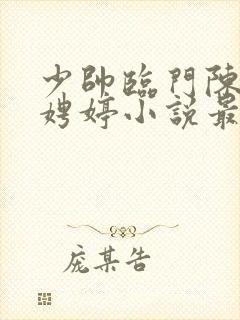 少帥臨門陳
娉婷小說最
庞某告